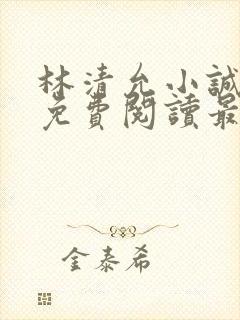 林清允小誠
免費閱讀最
金泰希